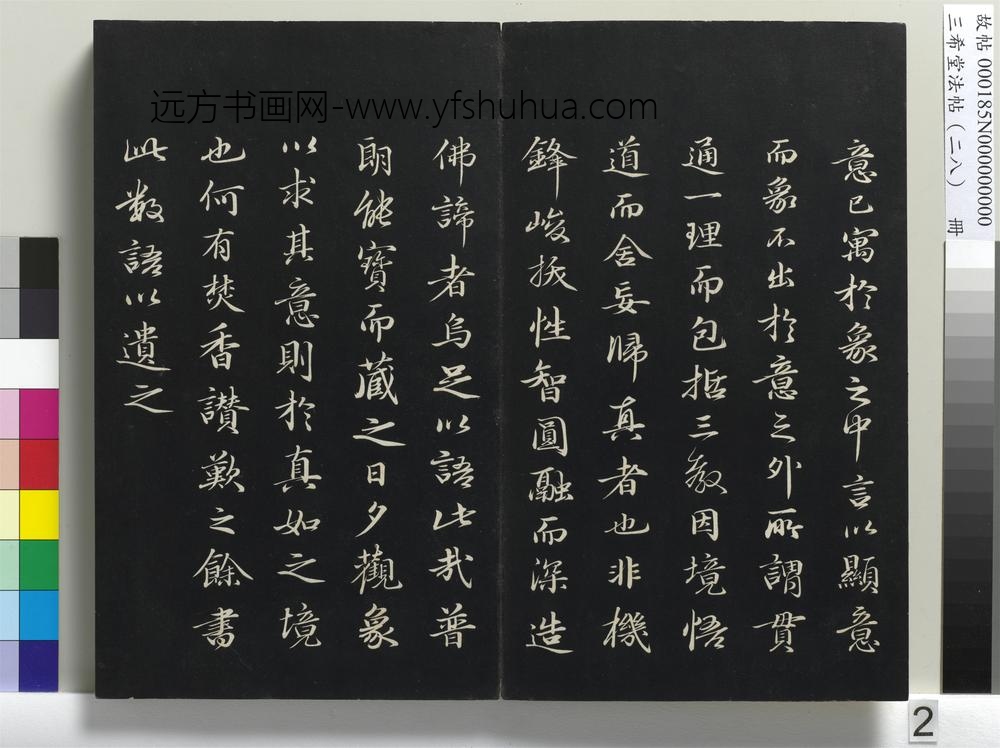 意已寓於象之中言以顯意
而象不出於意之外所謂貫
通一理而包括三教因境悟
道而舍妄歸真者也非機
鋒峻拔性智圓融而深造
佛諦者烏足以語此哉普
朗能寶而藏之日夕觀象
以求其意則於真如之境
也何有焚香讚歎之餘書
此數語以遺之
远方书画网-www.yfshuhua.com
故帖 000185N000000000
三希堂法帖(二八) 冊
2